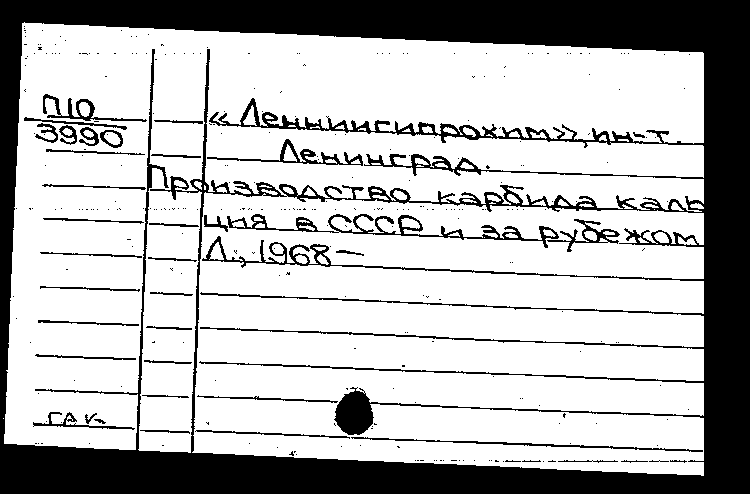 П10
3990
«Ленниигипрохим», ин-т.
Ленинград.
Производство карбида каль
ция в СССР и за рубежом
Л., 1968—
ГАК